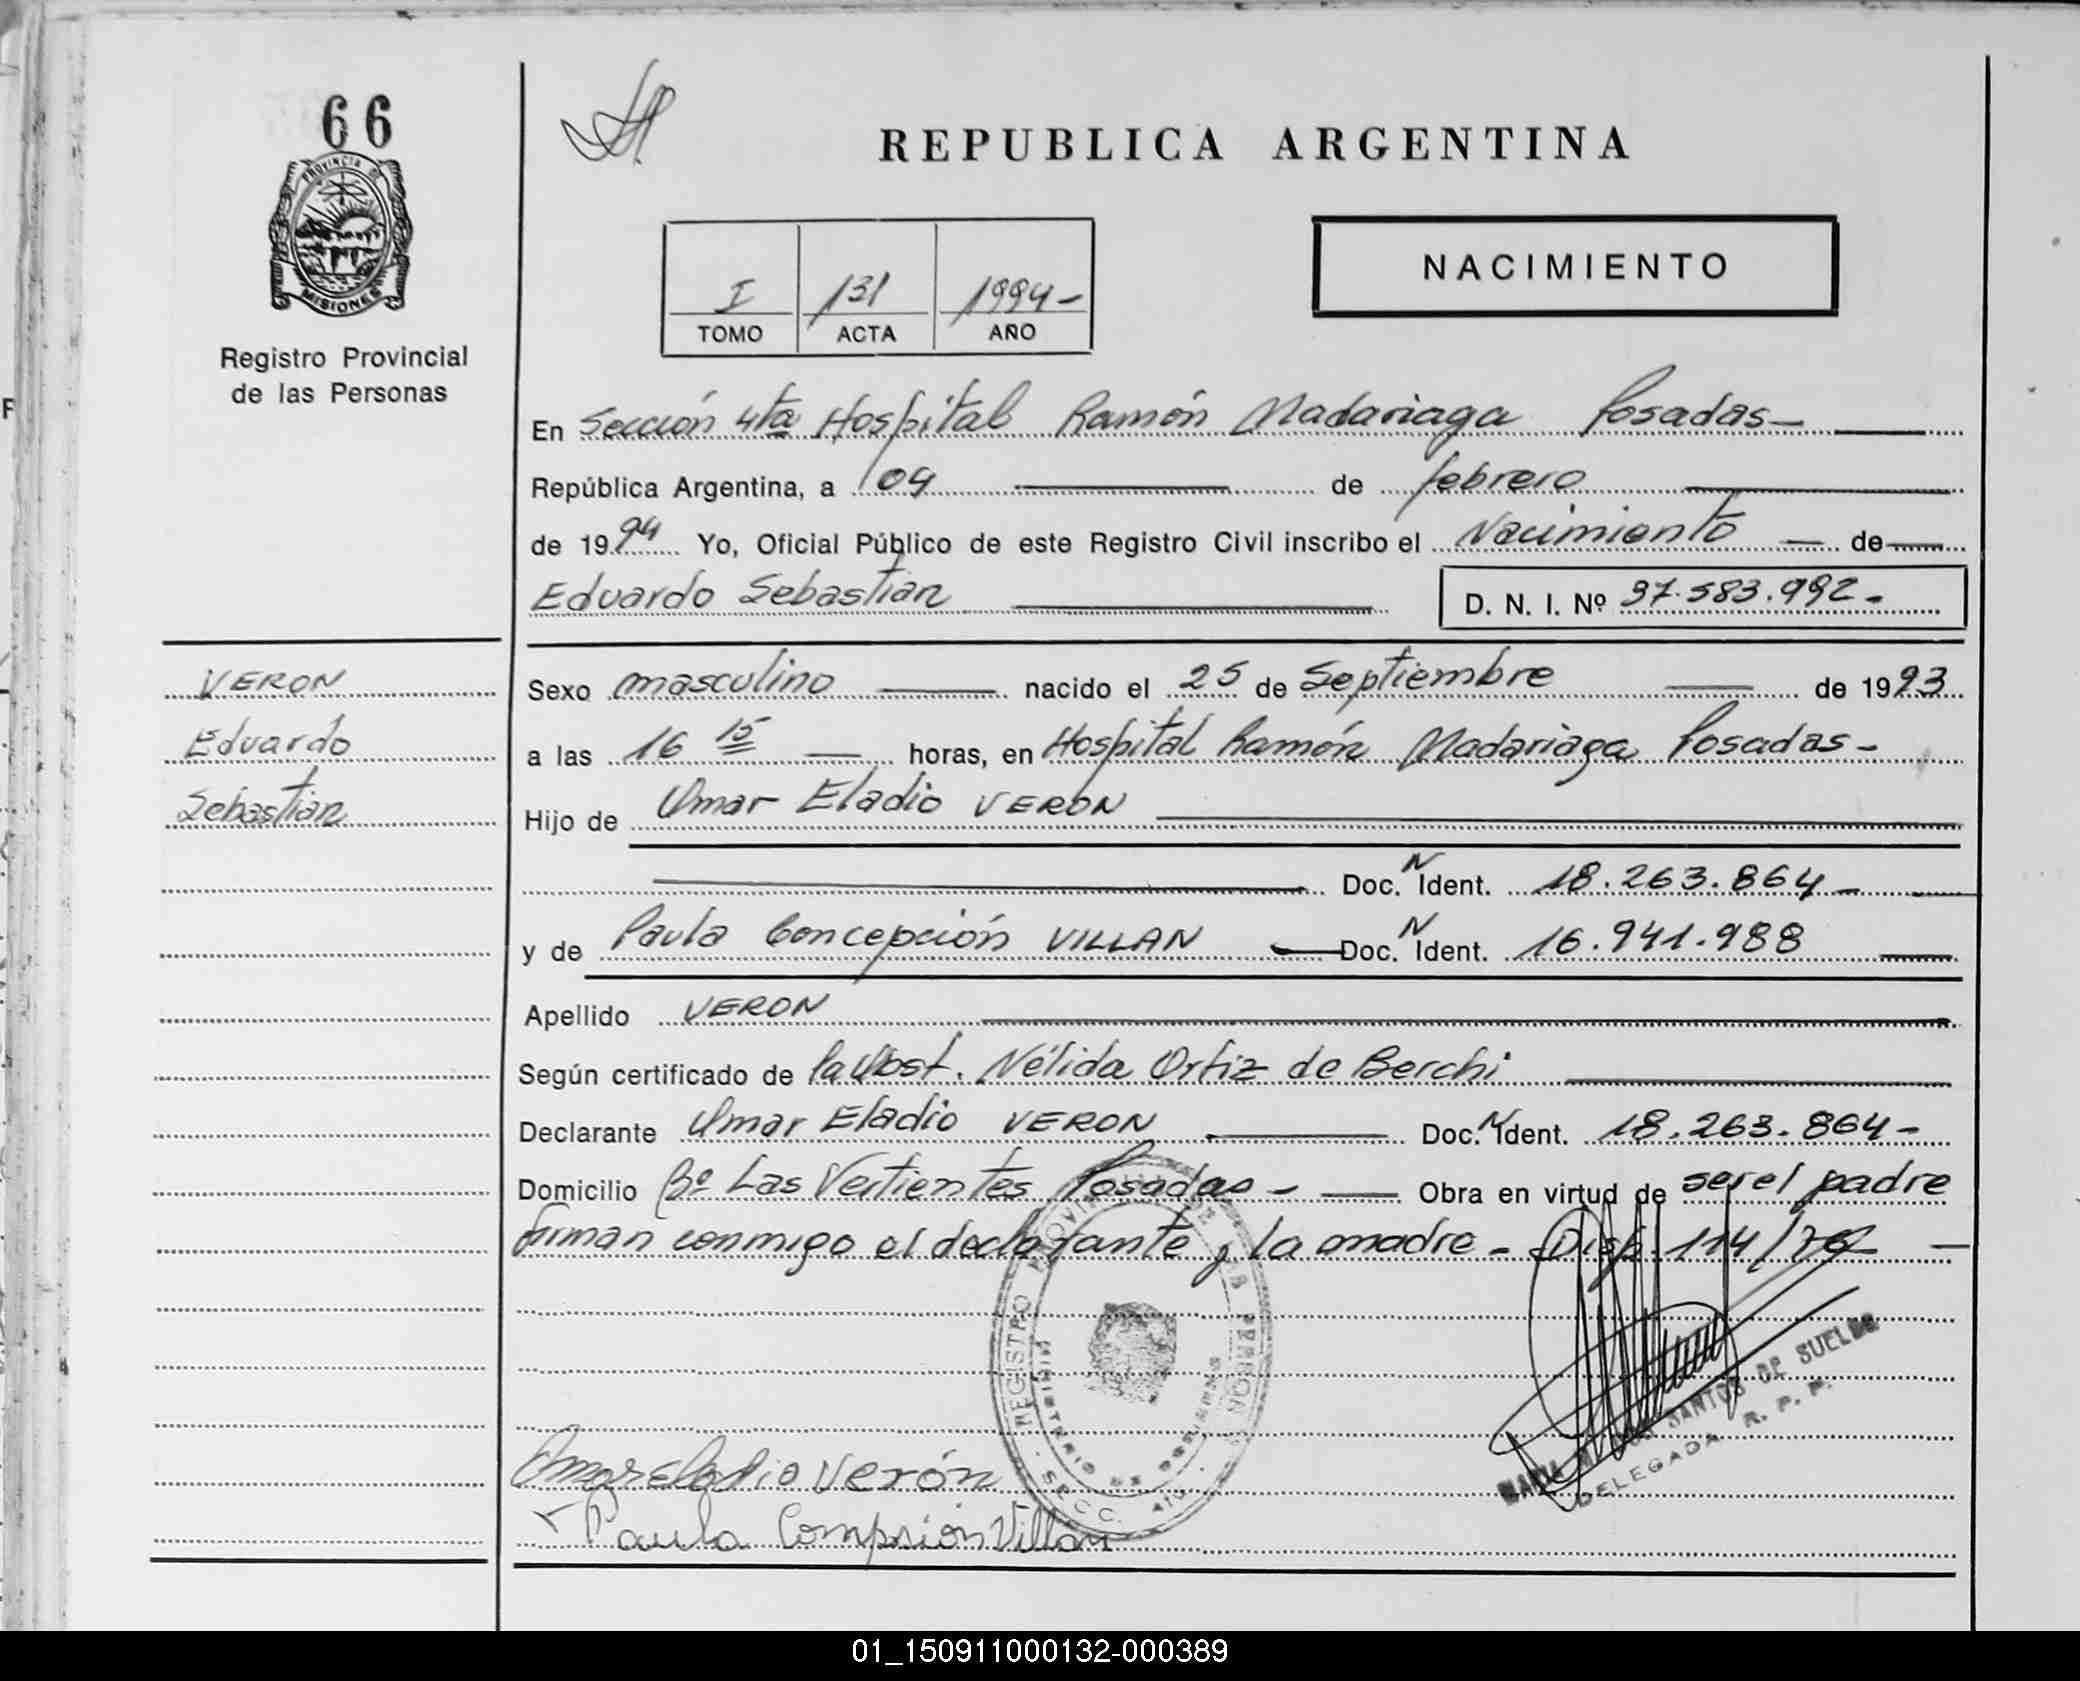 66
PROVINCIA DE
MISIONES
Registro Provincial
de las Personas
REPUBLICA ARGENTINA
I 131 1994-
TOMO ACTA AÑO
NACIMIENTO
En Sección 4ta Hospital Ramón Madariaga Posadas-
República Argentina, a 04 de febrero
de 1994 Yo, Oficial Público de este Registro Civil inscribo el Nacimiento de
Eduardo Sebastian D. N. I. Nº 37.583.992-
VERON
Eduardo
Sebastian
Sexo masculino nacido el 25 de Septiembre de 1993
a las 16 15 horas, en Hospital Ramón Madariaga Posadas-
Hijo de Omar Eladio VERON
Doc. N Ident. 18.263.864-
y de Paula Concepción VILLAN Doc. N Ident. 16.941.988
Apellido VERON
Según certificado de la Obst. Nélida Ortiz de Berchi
Declarante Omar Eladio VERON Doc. N Ident. 18.263.864-
Domicilio Bº Las Vertientes Posadas- Obra en virtud de ser el padre
firman conmigo el declarante y la madre- Disp. 114/
REGISTRO PROVINCIAL DE LAS PERSONAS
SECC. 4ta
MINISTERIO DE GOBIERNO
SANTOS DE SUELDO
DELEGADA R. P. P.
Omar Eladio Verón
Paula Villan
01_150911000132-000389